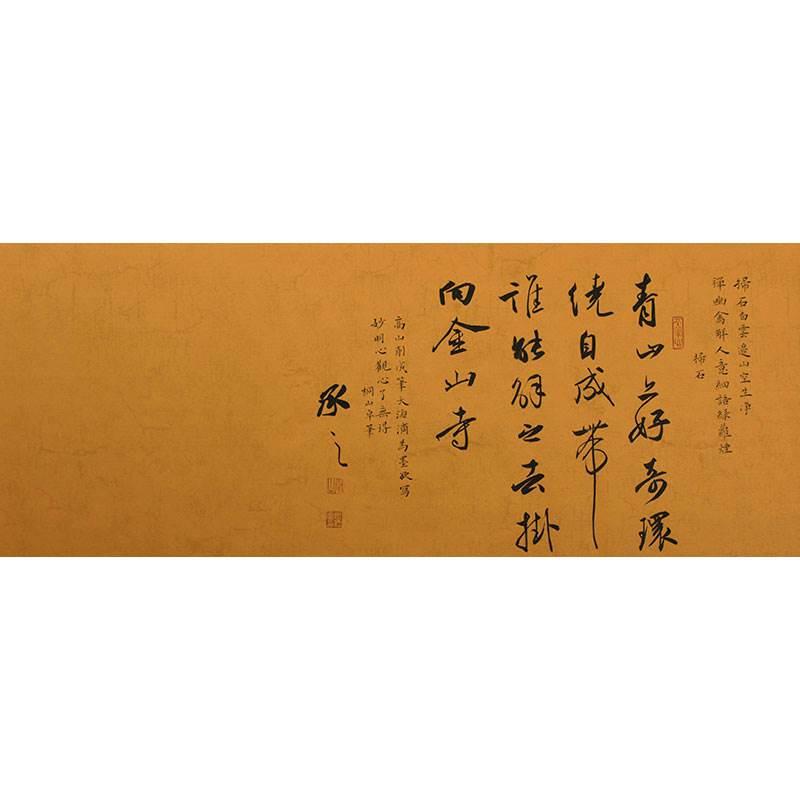 掃石白雲邊山空生淨
禪幽禽解人意細語綠蘿煙
掃石
青山上好奇環
繞自成帶
誰能解之去掛
向金山寺
高山削成筆大海滴為墨欲寫
妙明心觀心了無得
桐山卓筆
承之